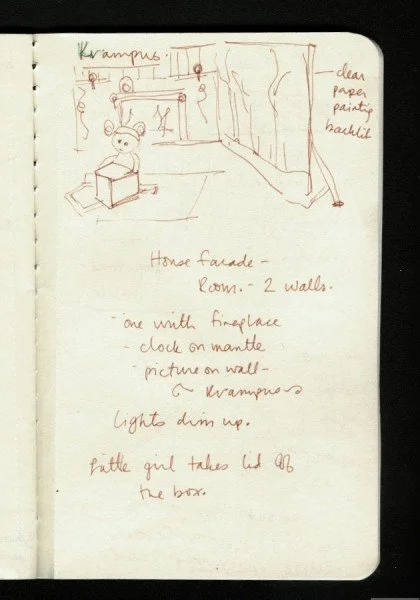 Krampus.
clear
paper
painting
backlit
House facade -
Room. - 2 walls.
- one with fireplace
- clock on mantle
- picture on wall -
Krampus
Lights dim up.
Little girl takes lid off
the box.